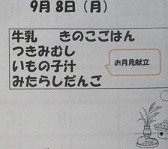 9月 8日（月）
牛乳　きのこごはん
つきみむし
いもの子汁
みたらしだんご
お月見献立